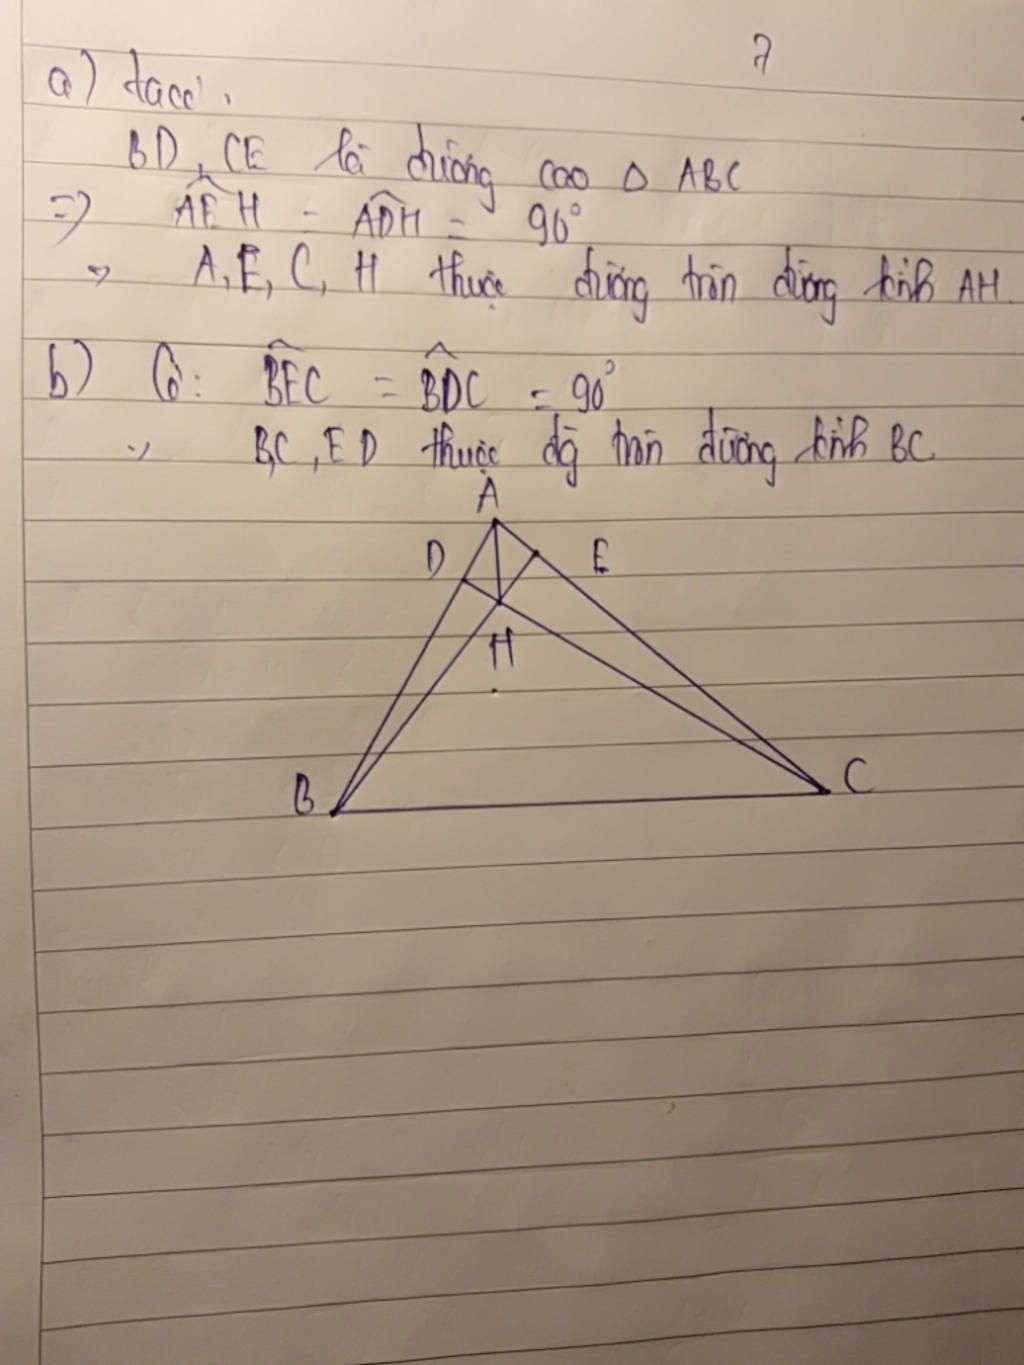 7
a) ta có:
BD, CE là đường cao Δ ABC
=> AEH = ADH = 90°
=> A, E, C, H thuộc đường tròn đường kính AH.
b) Có: BEC = BDC = 90°
=> B,C, E D thuộc đg tròn đường kính BC
A
D E
H
B C